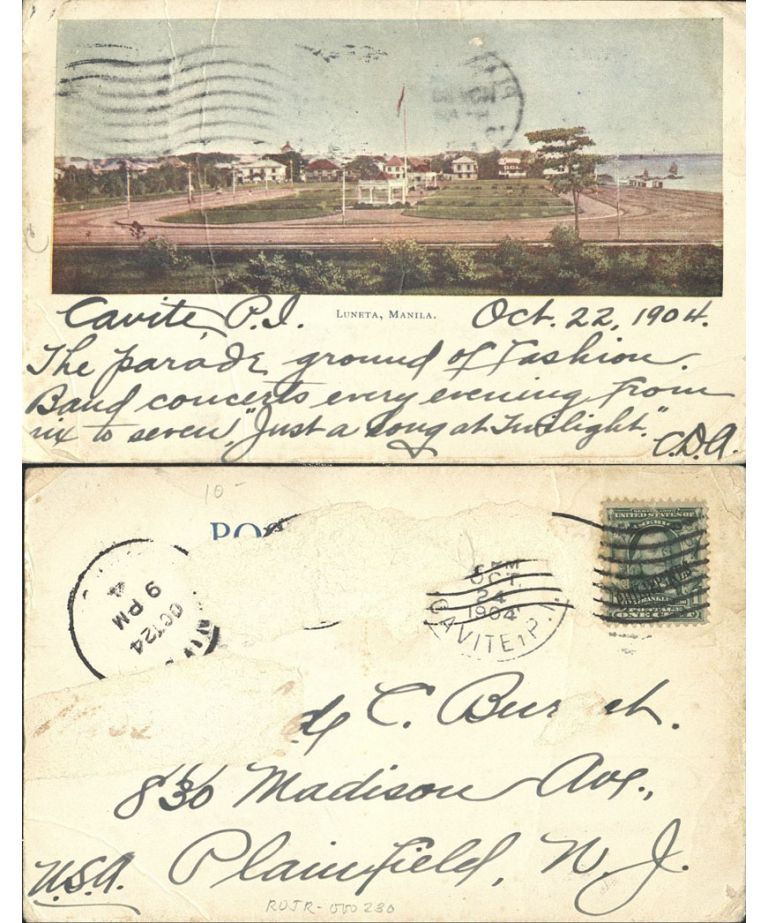 Luneta, Manila.
Cavite, P.I. Oct. 22, 1904.
The parade ground of Fashion.
Band concerts every evening from
six to seven, "Just a Song at Twilight."
C.D.A.
10-
PO
OCT 24
9 PM
4
PM
OCT.
24
1904
CAVITE, P.I.
UNITED STATES OF
AMERICA
PHILIPPINES
FRANKLIN
POSTAGE
ONE CENT
C. Bur ch.
830 Madison Ave.,
Plainfield, N.J.
U.S.A.
ROJR-000280